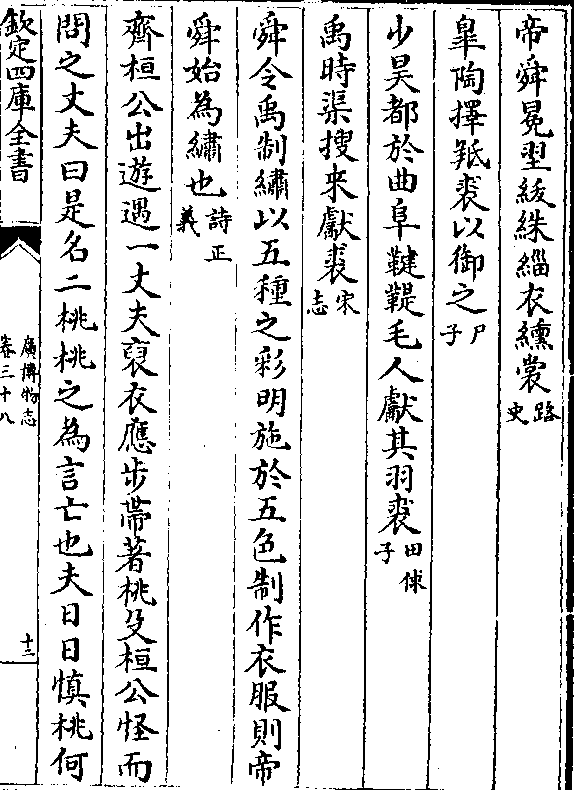 帝舜冕堲紱絑緇衣纁裳路史
皐陶擇羝裘以御之尸子
少昊都於曲阜鞬鞮毛人獻其羽裘田俅子
禹時渠搜来獻裘宋志
舜令禹制繡以五種之彩明施於五色制作衣服則帝
舜始為繡也詩正義
齊桓公出遊遇一丈夫裒衣應步帶著桃殳桓公怪而
問之丈夫曰是名二桃桃之為言亡也夫日日慎桃何
欽定四庫全書
廣博物志
卷三十八
十二